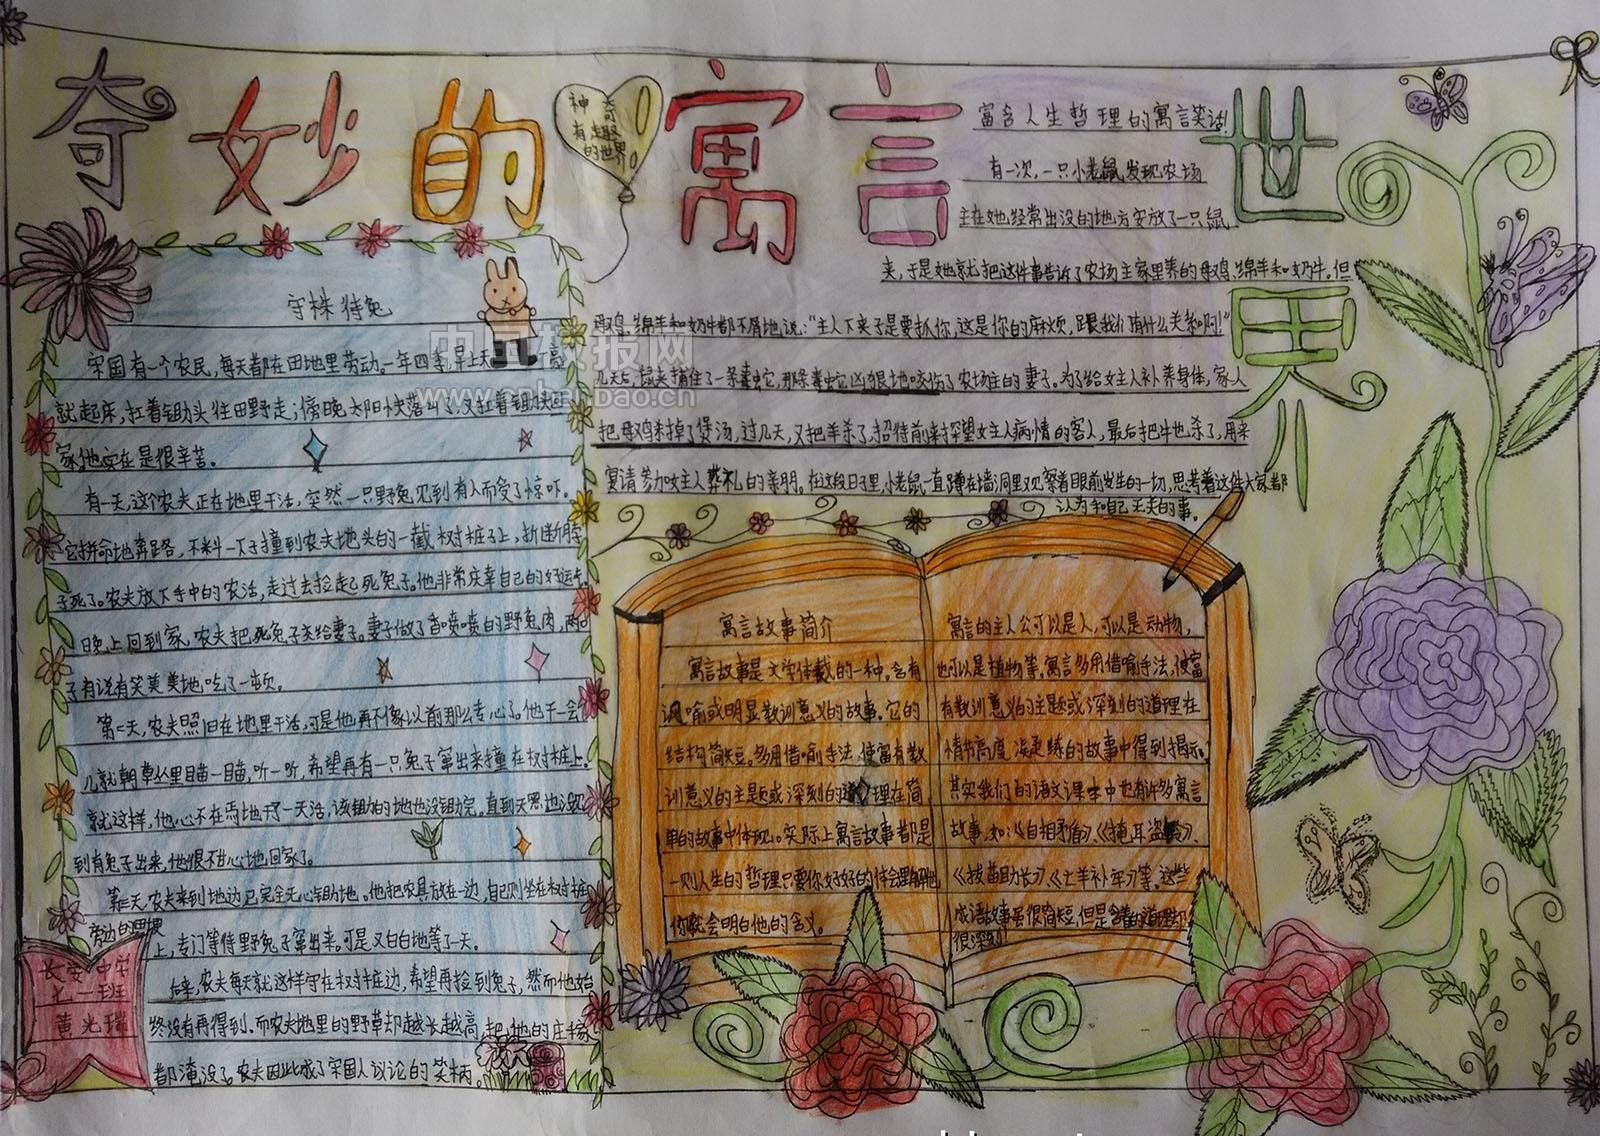 奇妙的寓言世界
神奇
有趣
的世界
富含人生哲理的寓言笑话!
有一次,一只小老鼠发现农场
主在她经常出没的地方安放了一只鼠
夹,于是她就把这件事告诉了农场主家里养的母鸡、绵羊和奶牛。但
母鸡、绵羊和奶牛都不屑地说:“主人下夹子是要抓你,这是你的麻烦,跟我们有什么关系啊!”
几天后,鼠夹捕住了一条毒蛇,那条毒蛇凶狠地咬伤了农场主的妻子。为了给女主人补养身体,家人
把母鸡杀掉了煲汤,过几天,又把羊杀了,招待前来探望女主人病情的客人,最后把牛也杀了,用来
宴请参加女主人葬礼的亲朋。在这段日子里,小老鼠一直蹲在墙洞里观察着眼前发生的一切,思考着这件大家都
认为和自己无关的事。
守株待兔
宋国有一个农民,每天都在田地里劳动。一年四季,早上天
就起床,扛着锄头往田野走;傍晚太阳快落山了,又扛着锄头回
家,他实在是很辛苦。
有一天,这个农夫正在地里干活,突然一只野兔见到有人而受了惊吓。
它拼命地奔跑,不料一下子撞到农夫地头的一截树桩子上,折断脖
子死了。农夫放下手中的农活,走过去捡起死兔子。他非常庆幸自己的好运气。
晚上回到家,农夫把死兔子交给妻子。妻子做了香喷喷的野兔肉,两口
子有说有笑美美地吃了一顿。
第二天,农夫照旧在地里干活,可是他再不像以前那么专心了。他干一会
儿就朝草丛里瞄一瞄,听一听,希望再有一只兔子窜出来撞在树桩上。
就这样,他心不在焉地干了一天活,该锄的地也没锄完。直到天黑也没
到有兔子出来,他很不甘心地回家了。
第三天,农夫来到地边,已完全无心锄地。他把农具放在一边,自己则坐在树桩
旁边的田埂
上,专门等待野兔子窜出来。可是又白白地等了一天。
后来,农夫每天就这样守在树桩边,希望再捡到兔子,然而他始
终没有再得到。而农夫地里的野草却越长越高,把他的庄稼
都淹没了。农夫因此成了宋国人议论的笑柄。
长安中学
七一班
黄光瑞
寓言故事简介
寓言故事是文学体裁的一种。含有
讽喻或明显教训意义的故事。它的
结构简短。多用借喻手法,使富有教
训意义的主题或深刻的道理在简
单的故事中体现。实际上寓言故事都是
一则人生的哲理只要你好好的体会理解他
你就会明白他的含义。
寓言的主人公可以是人,可以是动物,
也可以是植物等。寓言多用借喻手法,使富
有教训意义的主题或深刻的道理在
情节高度凝练的故事中得到揭示。
其实我们的语文课本中也有许多寓言
故事。如:《自相矛盾》、《掩耳盗铃》、
《拔苗助长》、《亡羊补牢》等。这些
成语故事虽很简短,但是含着的道理却
很深刻!
中国板报网